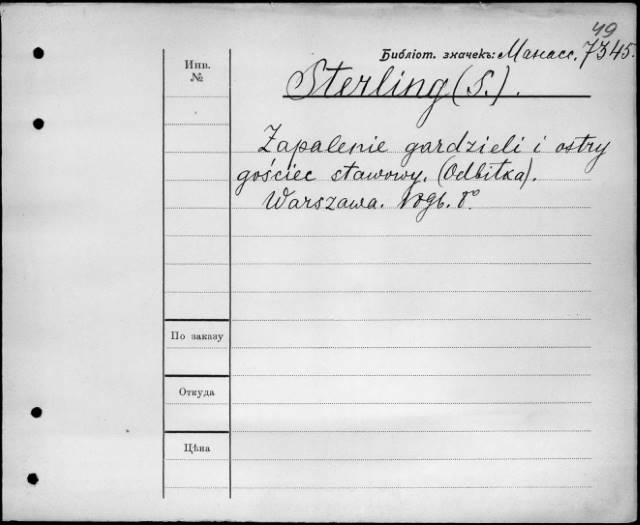 49
Библіот. значекъ: Манасс. 7345.
Инв.
№
Sterling (S.).
Zapalenie gardzieli i ostry
gościec stawowy. (Odbitka).
Warszawa. 1896. 8°
По заказу
Откуда
Цѣна